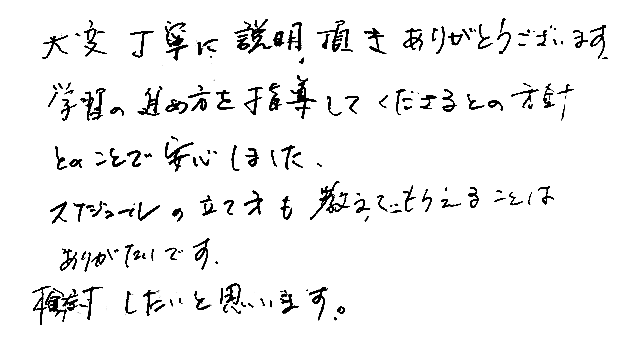 大変丁寧に説明頂きありがとうございます
学習の進め方を指導してくださるとの方針
とのことで安心しました、
スケジュールの立て方も教えてもらえることは
ありがたいです.
検討したいと思います。